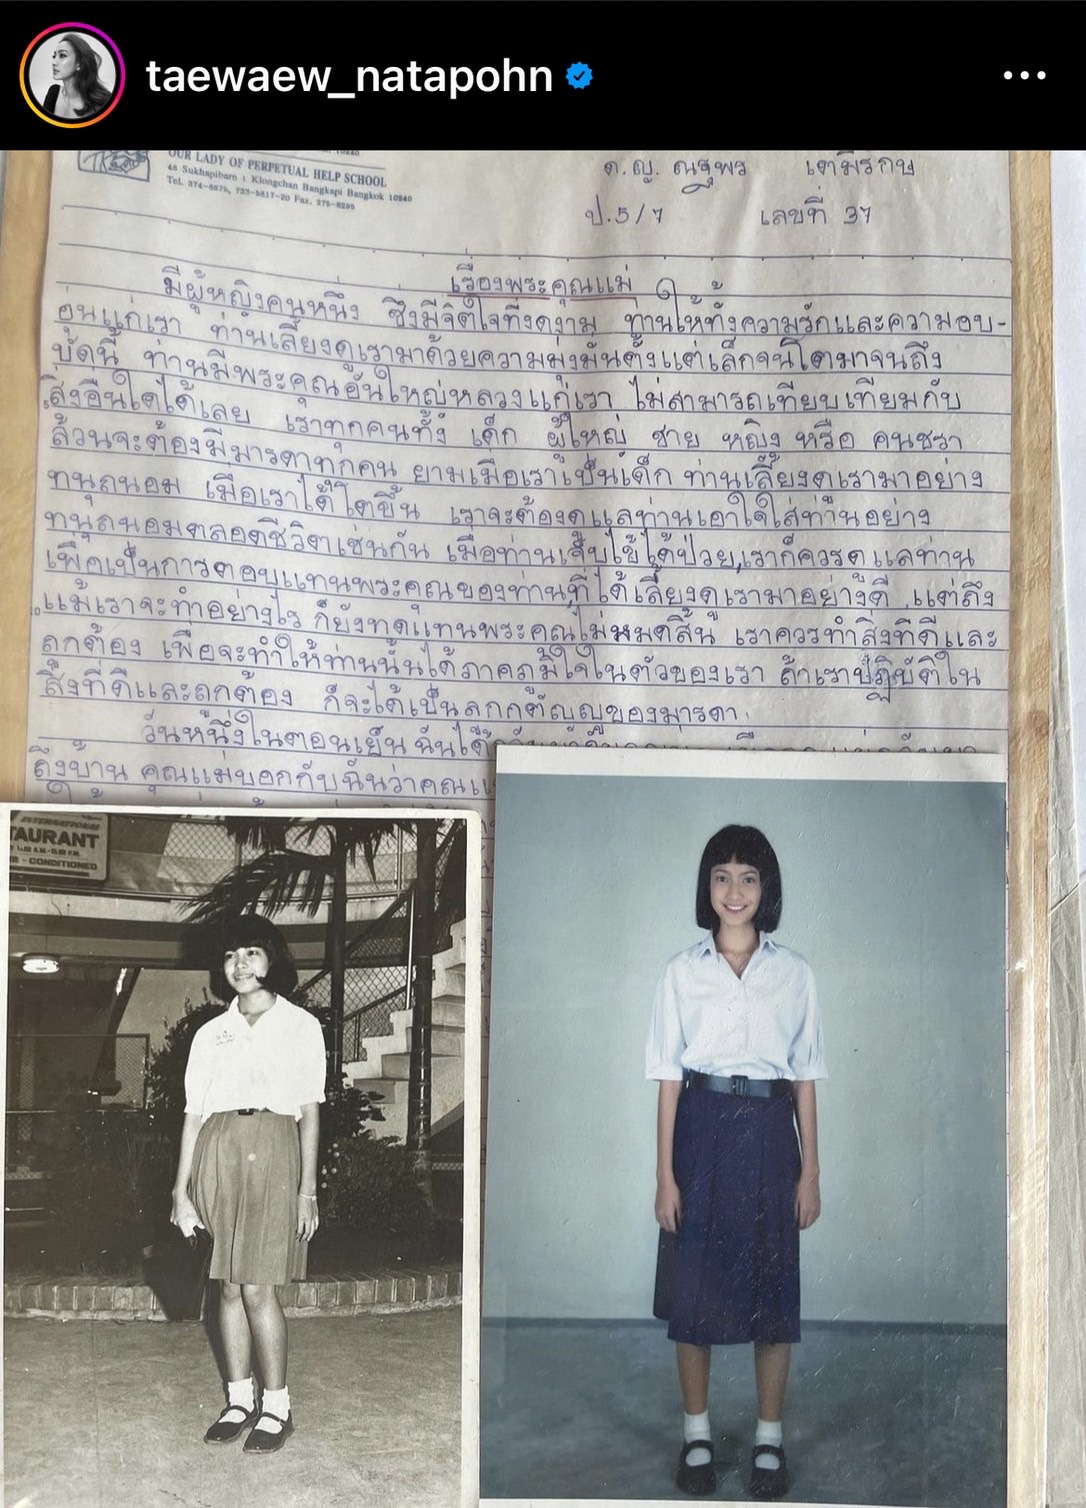 taewaew_natapohn
OUR LADY OF PERPETUAL HELP SCHOOL
48 Sukhapibarn 1 Klongchan Bangkapi Bangkok 10240
Tel. 374-6675, 733-5817-20 Fax. 375-8295
ด.ญ. ณฐพร เตมีรักษ์
ป.5/7 เลขที่ 37
เรื่องพระคุณแม่
มีผู้หญิงคนหนึ่ง ซึ่งมีจิตใจที่งดงาม ท่านให้ทั้งความรักและความอบ-
อุ่นแก่เรา ท่านเลี้ยงดูเรามาด้วยความมุ่งมั่นตั้งแต่เล็กจนโตมาจนถึง
บัดนี้ ท่านมีพระคุณอันใหญ่หลวงแก่เรา ไม่สามารถเทียบเทียมกับ
5 สิ่งอื่นใดได้เลย เราทุกคนทั้ง เด็ก ผู้ใหญ่ ชาย หญิง หรือ คนชรา
ล้วนจะต้องมีมารดาทุกคน ยามเมื่อเราเป็นเด็ก ท่านเลี้ยงดูเรามาอย่าง
ทนุถนอม เมื่อเราได้โตขึ้น เราจะต้องดูแลท่านเอาใจใส่ท่านอย่าง
ทนุถนอมตลอดชีวิตเช่นกัน เมื่อท่านเจ็บไข้ได้ป่วย,เราก็ควรดูแลท่าน
เพื่อเป็นการตอบแทนพระคุณของท่านที่ได้เลี้ยงดูเรามาอย่างดี แต่ถึง
10 แม้เราจะทำอย่างไร ก็ยังทดแทนพระคุณไม่หมดสิ้น เราควรทำสิ่งที่ดีและ
ถูกต้อง เพื่อจะทำให้ท่านนั้นได้ภาคภูมิใจในตัวของเรา ถ้าเราปฏิบัติใน
สิ่งที่ดีและถูกต้อง ก็จะได้เป็นลูกกตัญญูของมารดา
วันหนึ่งในตอนเย็น ฉันได้
ถึงบ้าน คุณแม่บอกกับฉันว่าคุณแ
INTERNATIONAL
TAURANT
R - CONDITIONED